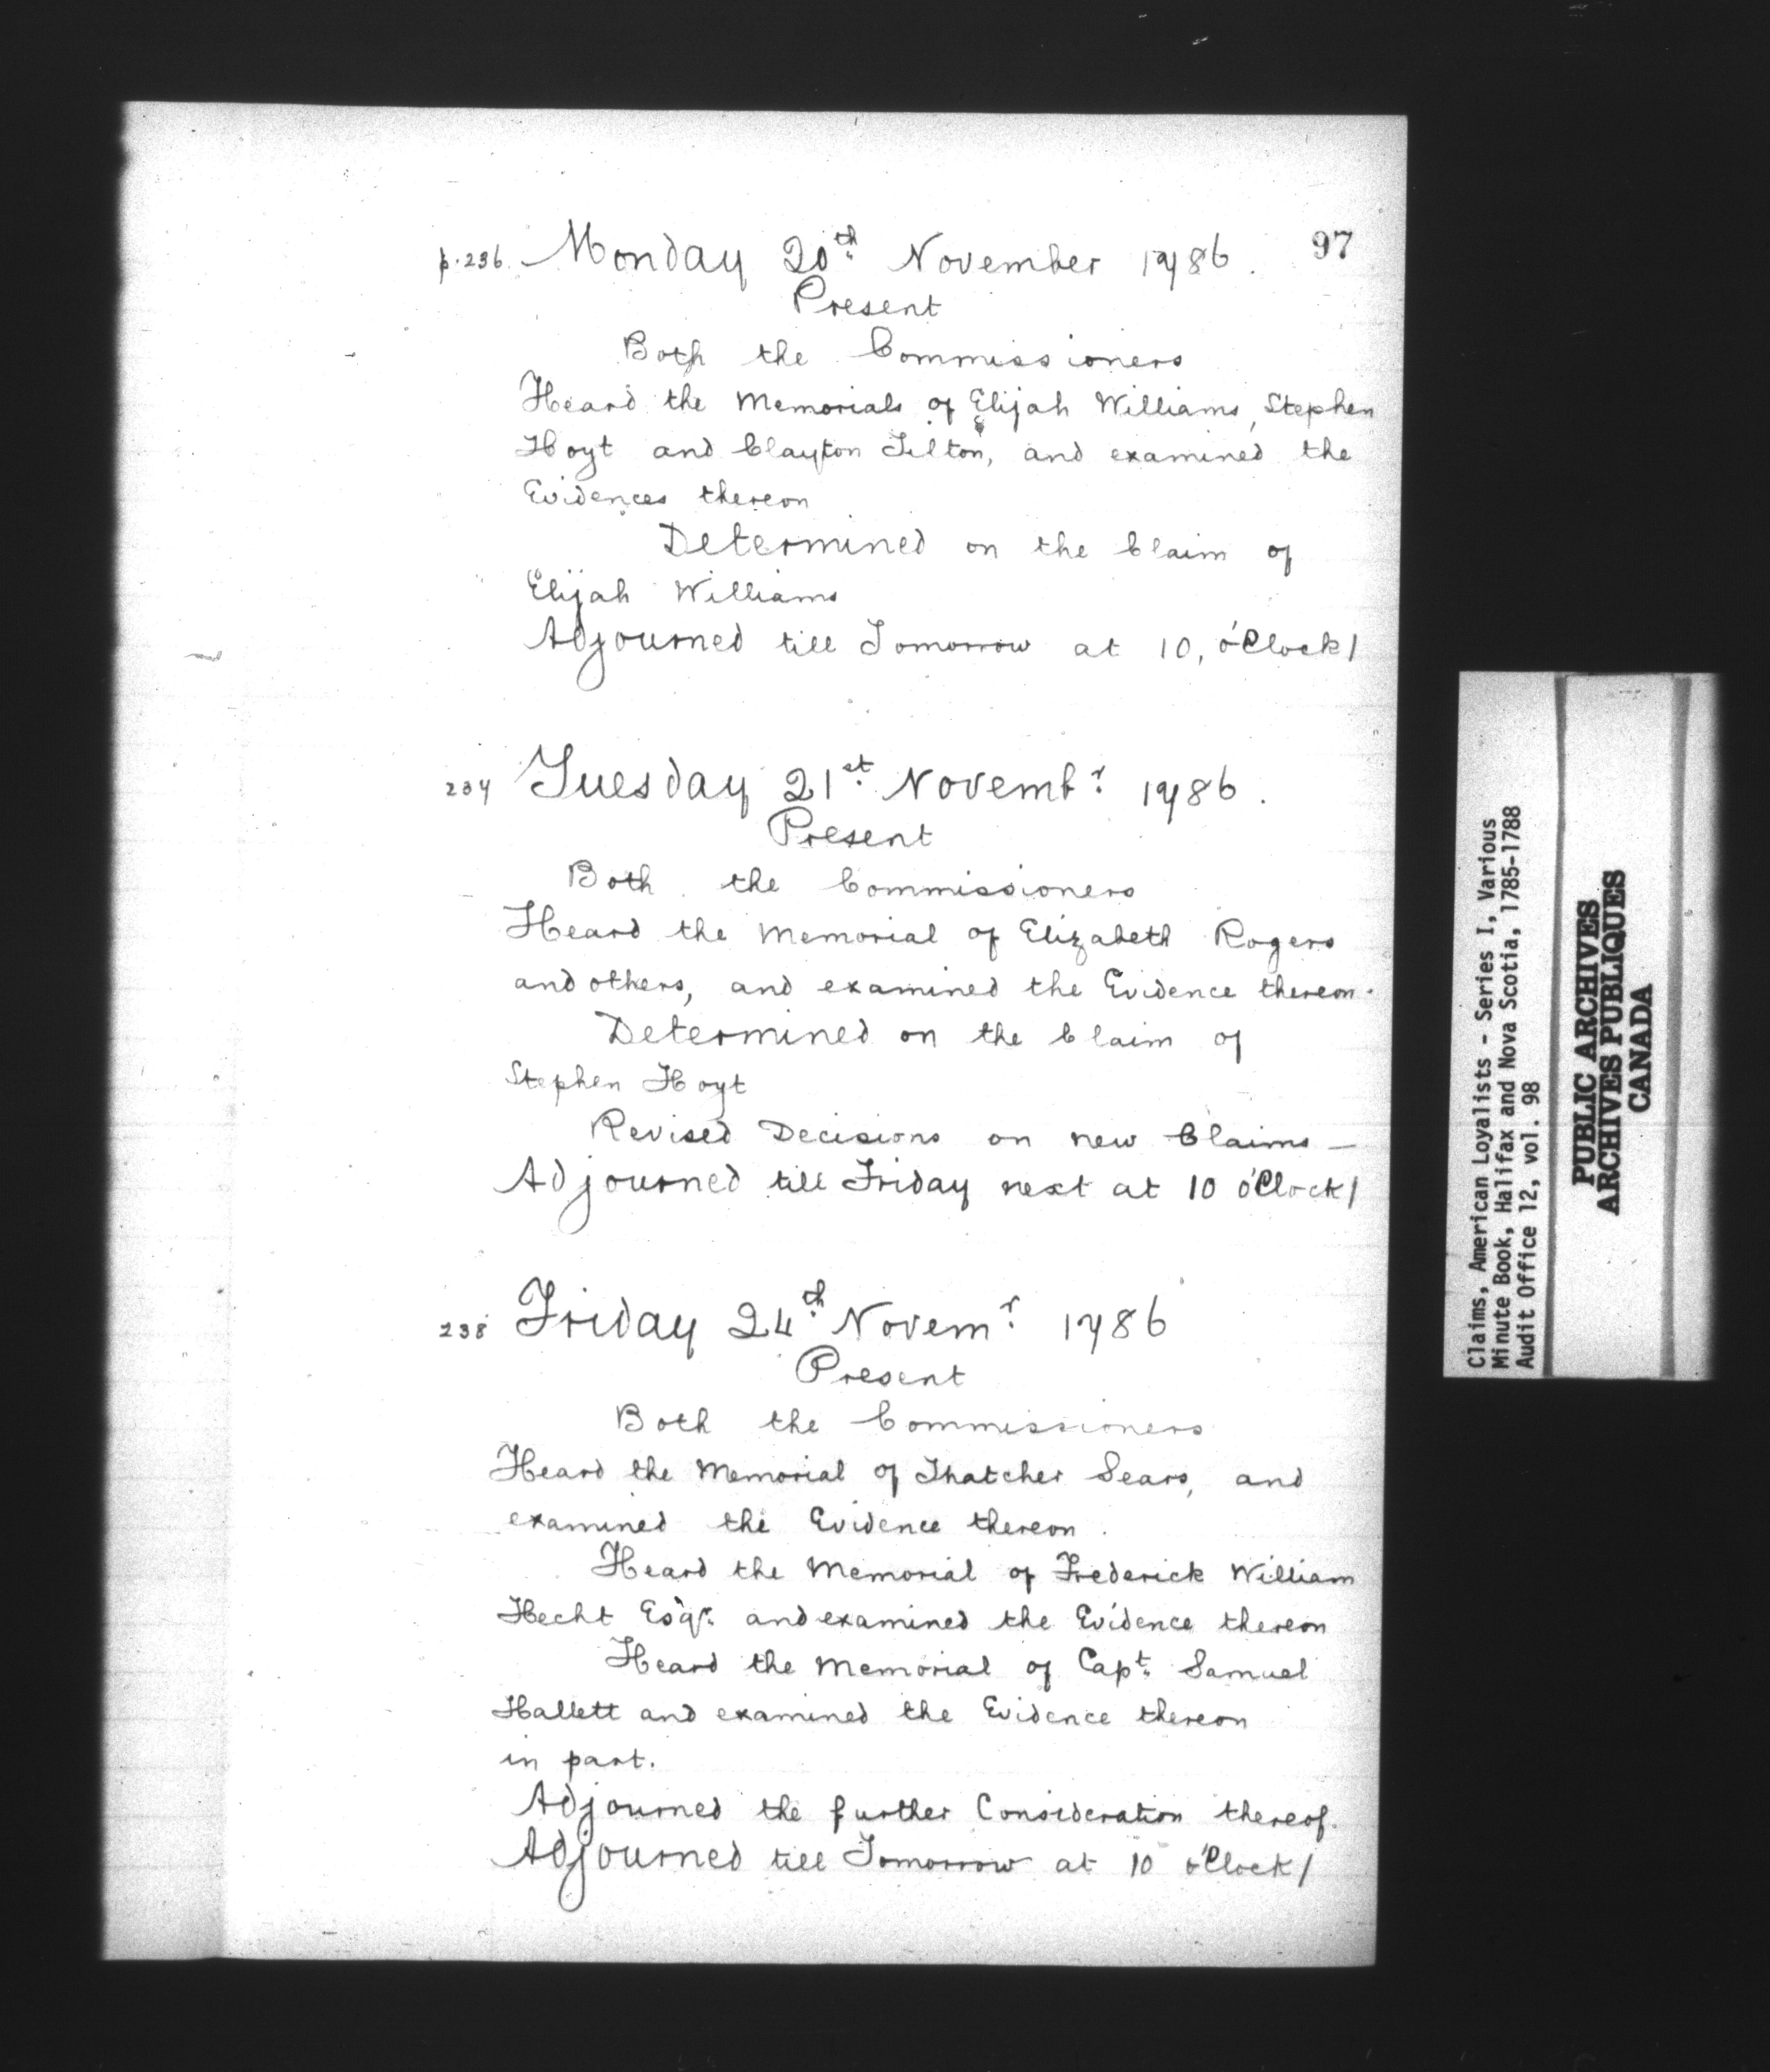 97
p. 236. Monday 20th November 1786.
Present
Both the Commissioners
Heard the Memorials of Elijah Williams, Stephen
Hoyt and Clayton Tilton, and examined the
Evidences thereon
Determined on the Claim of
Elijah Williams
Adjourned till Tomorrow at 10, o'Clock/
237 Tuesday 21st Novembr 1786.
Present
Both the Commissioners
Heard the Memorial of Elizabeth Rogers
and others, and examined the Evidence thereon.
Determined on the Claim of
Stephen Hoyt
Revised Decisions on new Claims —
Adjourned till Friday next at 10 o'Clock/
238 Friday 24th Novemr 1786
Present
Both the Commissioners
Heard the Memorial of Thatcher Sears, and
examined the Evidence thereon.
Heard the Memorial of Frederick William
Hecht Esqr. and examined the Evidence thereon
Heard the Memorial of Capt. Samuel
Hallett and examined the Evidence thereon
in part.
Adjourned the further Consideration thereof.
Adjourned till Tomorrow at 10 o'Clock/
Claims, American Loyalists - Series I, Various
Minute Book, Halifax and Nova Scotia, 1785-1788
Audit Office 12, vol. 98
PUBLIC ARCHIVES
ARCHIVES PUBLIQUES
CANADA